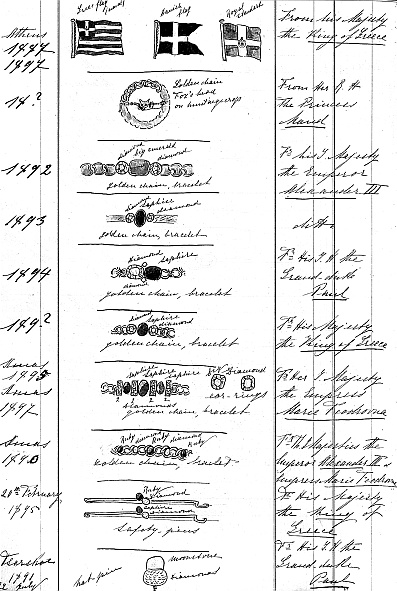 Athens
1887
1897
Danish flag
Royal Standard
From his Majesty
the King of Greece
18?
Golden chain
Fox's head
on huntingcrop
From Her R H
The Princess
Maud
1892
diamond big emerald diamond
golden chain, bracelet
Fr his I Majesty
the Emperor
Alexander III
1893
Saphire
diamond
golden chain, bracelet
ditto
1894
diamond saphire
diamond
golden chain, bracelet
Fr His I H the
Grand duke
Paul
189?
saphire
diamond
golden chain, bracelet
Fr His Majesty
the King of Greece
Xmas
1895
Xmas
1897
saphire saphire saphire
diamonds
golden chain, bracelet
Diamond
ear-rings
Fr Her I Majesty
the Empress
Marie Feodrovna
Xmas
Ruby diamond Ruby diamond
Ruby
golden chain, bracelet
Majesties the
Emperor Alexander III &
Empress Marie Feodrovna
20th February
1895
Ruby
diamond
saphire
diamond
safety-pins
Fr His Majesty
the King of
Greece
hat-pin
moonstone
diamonds
Fr His I H the
Grand duke
Paul